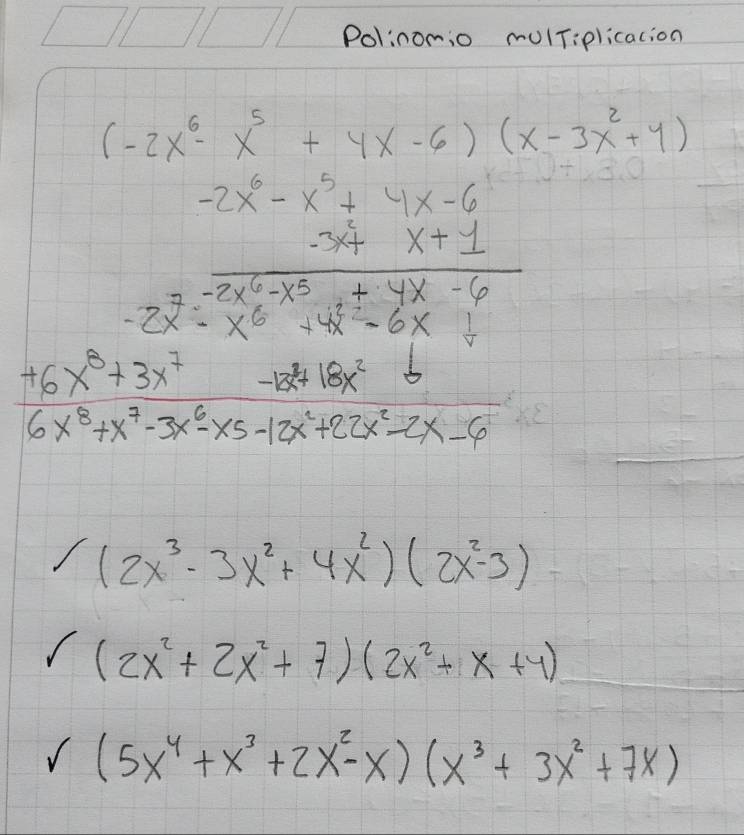 Polinomio multiplicacion
(-2x⁶ - x⁵ + 4x - 6) (x - 3x² + 1)
-2x⁶ - x⁵ + 4x - 6
-3x² + x + 1
-2x⁶ - x⁵ + 4x - 6
-2x⁷ - x⁶ + 4x² - 6x ↓
+6x⁸ + 3x⁷ -12x³ + 18x² ↓
6x⁸ + x⁷ - 3x⁶ - x5 - 12x² + 22x² - 2x - 6
✓ (2x³ - 3x² + 4x²) (2x² - 3)
✓ (2x² + 2x² + 7) (2x² + x + 4)
✓ (5x⁴ + x³ + 2x² - x) (x³ + 3x² + 7x)